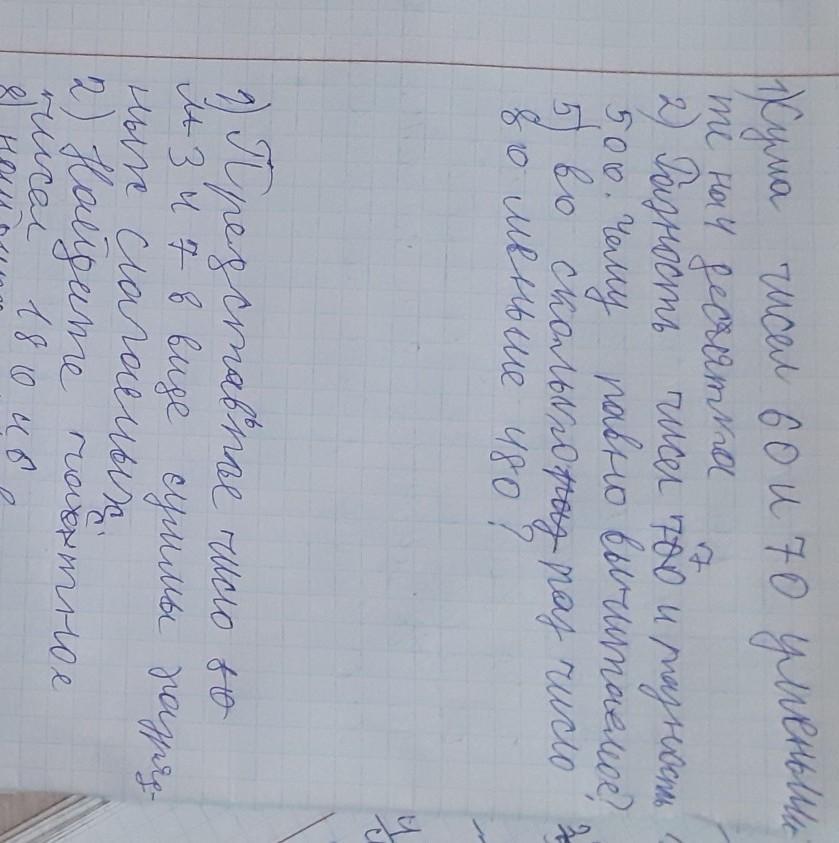 1) Сума чисел 60 и 70 уменьши
те на 4 десятка
2) Разность чисел 700 и разность
500. Чему равно вычитаемое?
5) во сколько раз число
80 меньше 480?
1) Представьте число
3 и 7 в виде суммы разряд-
ных слагаемых
2) Найдите частное
чисел 180 и 6